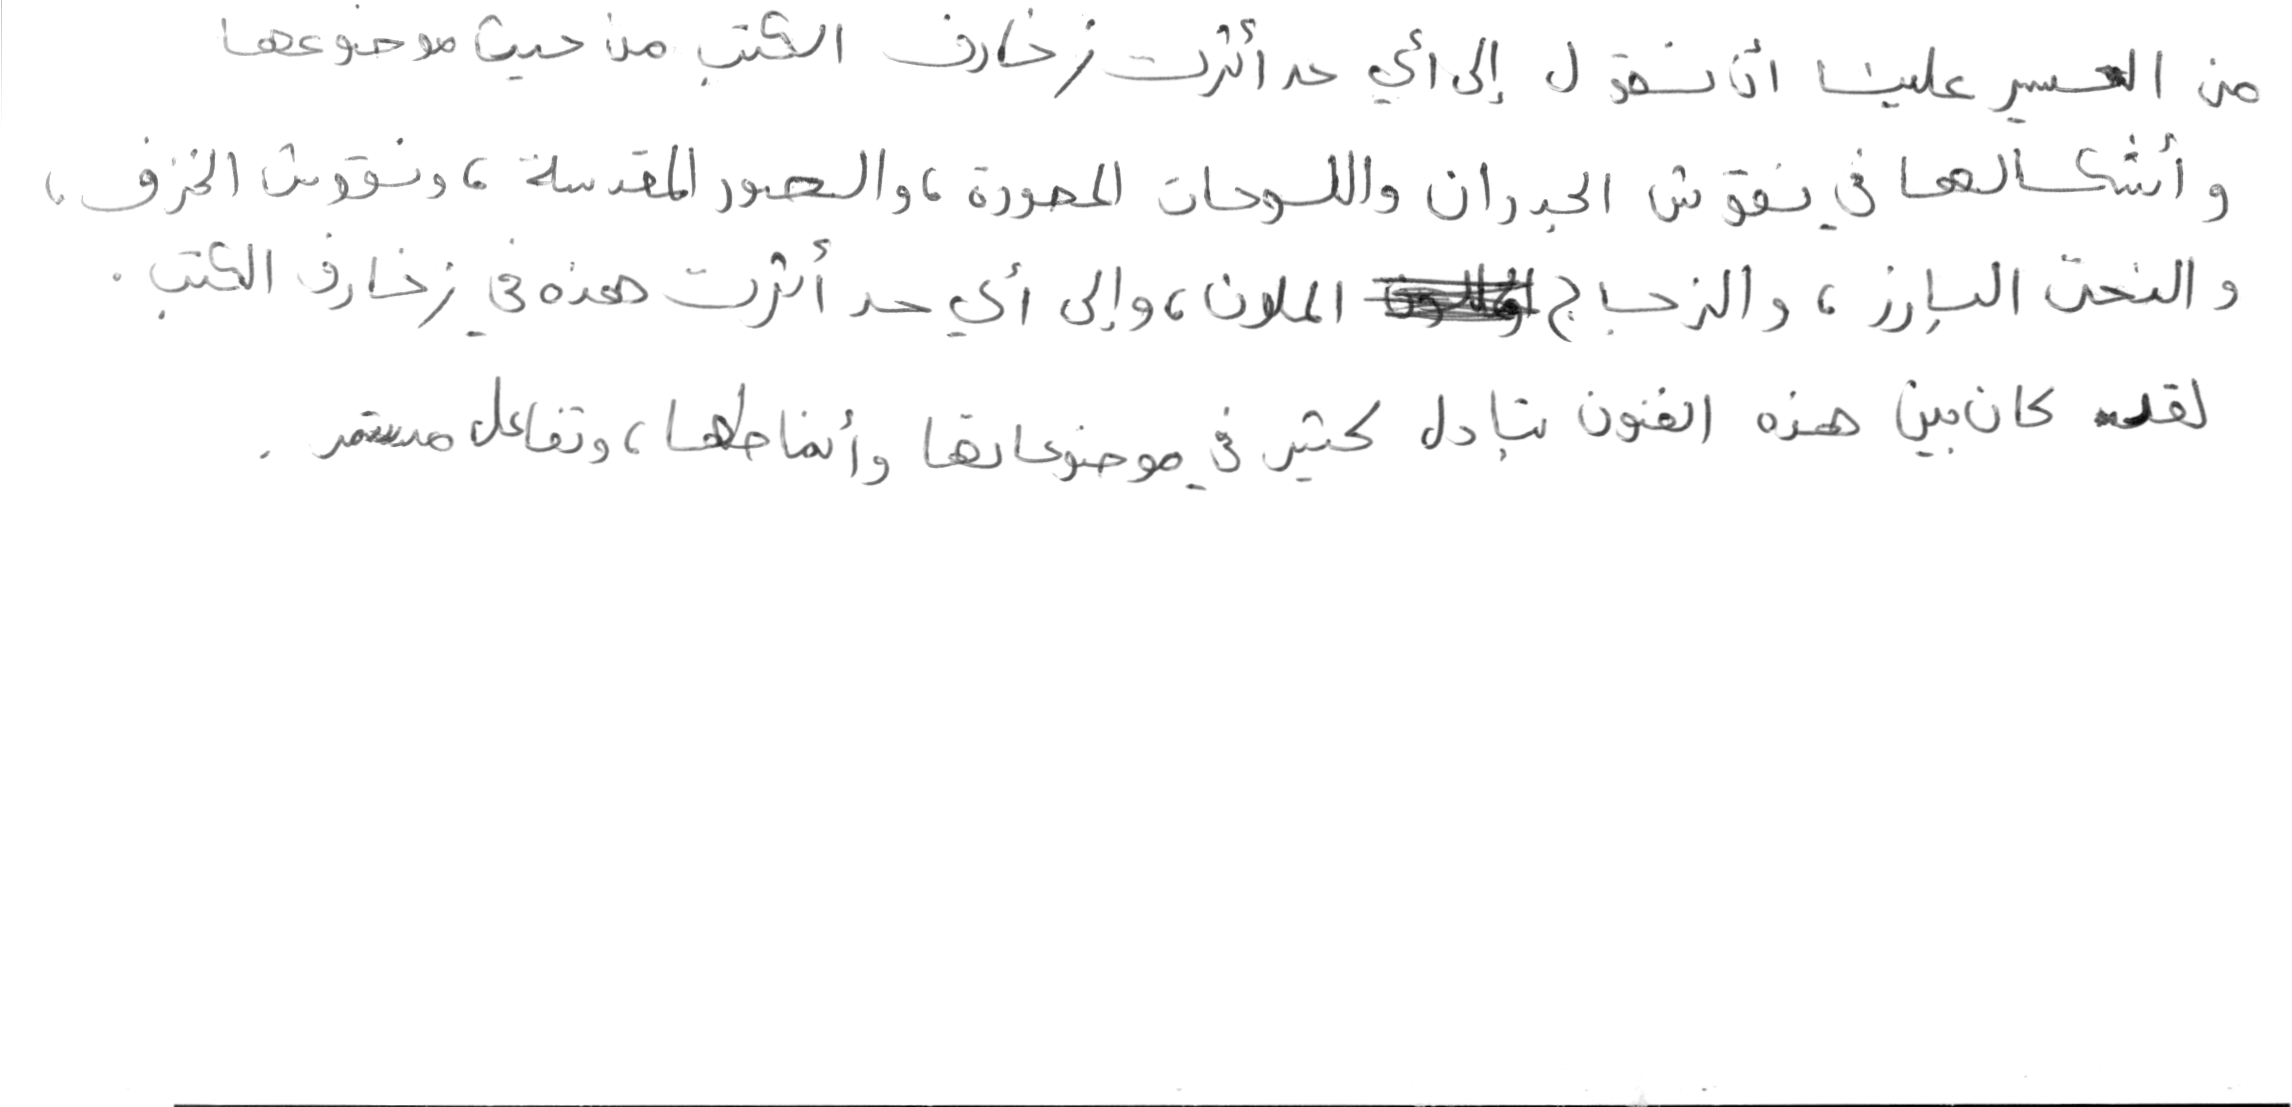 من العسير علينا أن نقول إلى أي حد أثرت زخارف الكتب من حيث موضوعها
وأشكالها في نقوش الجدران واللوحات المصورة، والصور المقدسة، ونقوش الخزف،
والنحت البارز، والزجاج الملون، وإلى أي حد أثرت هذه في زخارف الكتب.
لقد كان بين هذه الفنون تبادل كثير في موضوعاتها وأنماطها، وتفاعل مستمر.